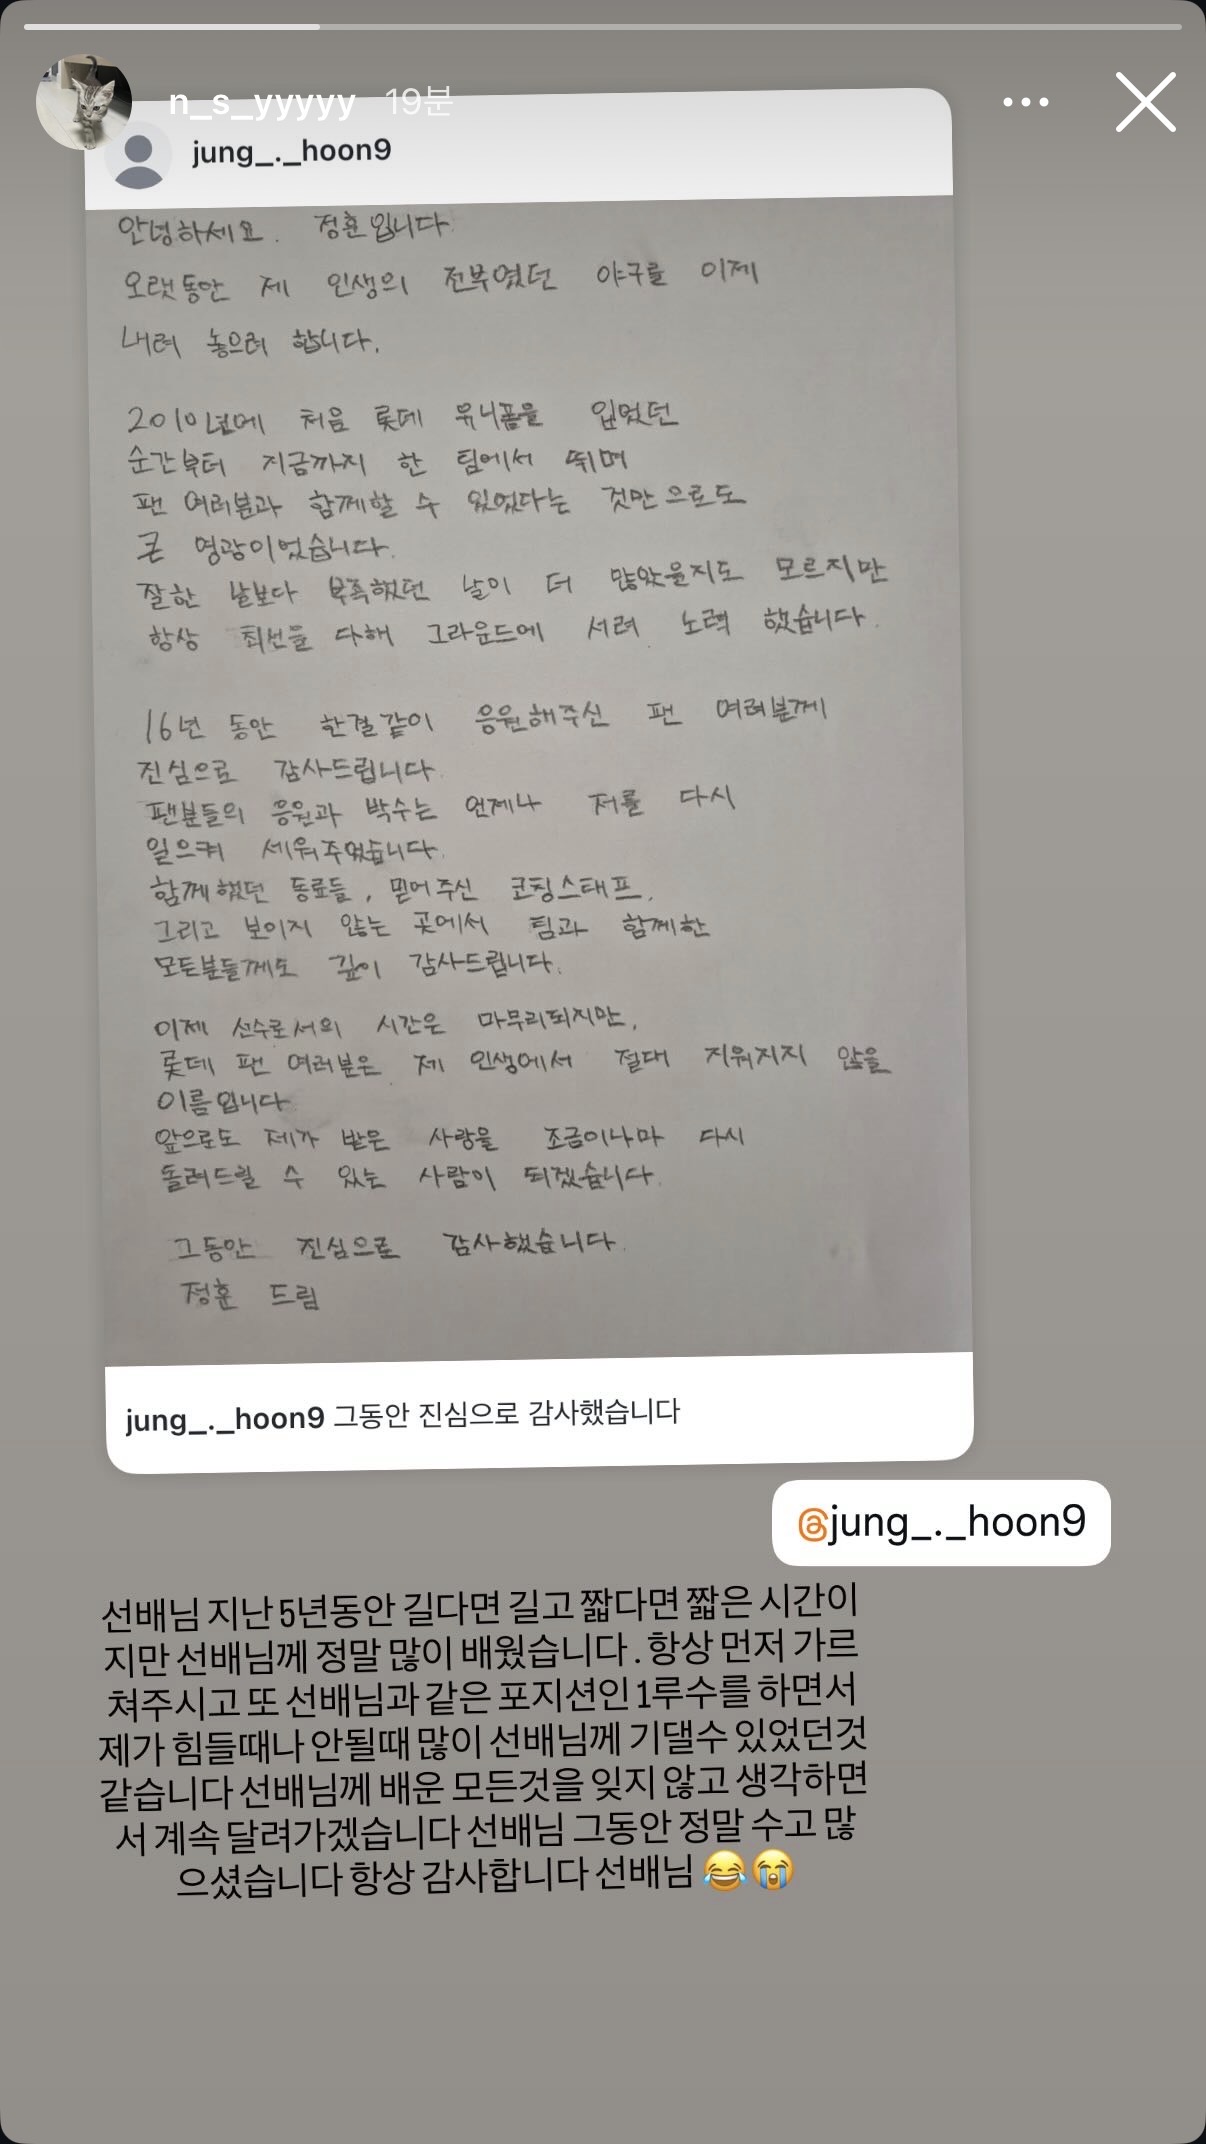 n_s_yyyyy 19분
jung_._hoon9
안녕하세요. 정훈입니다.
오랫동안 제 인생의 전부였던 야구를 이제
내려 놓으려 합니다.
2010년에 처음 롯데 유니폼을 입었던
순간부터 지금까지 한 팀에서 뛰며
팬 여러분과 함께할 수 있었다는 것만으로도
큰 영광이었습니다.
잘한 날보다 부족했던 날이 더 많았을지도 모르지만
항상 최선을 다해 그라운드에 서려 노력 했습니다.
16년 동안 한결같이 응원해주신 팬 여러분께
진심으로 감사드립니다.
팬분들의 응원과 박수는 언제나 저를 다시
일으켜 세워주었습니다.
함께했던 동료들, 믿어주신 코칭스태프,
그리고 보이지 않는 곳에서 팀과 함께한
모든분들께도 깊이 감사드립니다.
이제 선수로서의 시간은 마무리되지만,
롯데 팬 여러분은 제 인생에서 절대 지워지지 않을
이름입니다
앞으로도 제가 받은 사랑을 조금이나마 다시
돌려드릴 수 있는 사람이 되겠습니다.
그동안 진심으로 감사했습니다.
정훈 드림
jung_._hoon9 그동안 진심으로 감사했습니다
@jung_._hoon9
선배님 지난 5년동안 길다면 길고 짧다면 짧은 시간이
지만 선배님께 정말 많이 배웠습니다 . 항상 먼저 가르
쳐주시고 또 선배님과 같은 포지션인 1루수를 하면서
제가 힘들때나 안될때 많이 선배님께 기댈수 있었던것
같습니다 선배님께 배운 모든것을 잊지 않고 생각하면
서 계속 달려가겠습니다 선배님 그동안 정말 수고 많
으셨습니다 항상 감사합니다 선배님 😂😭